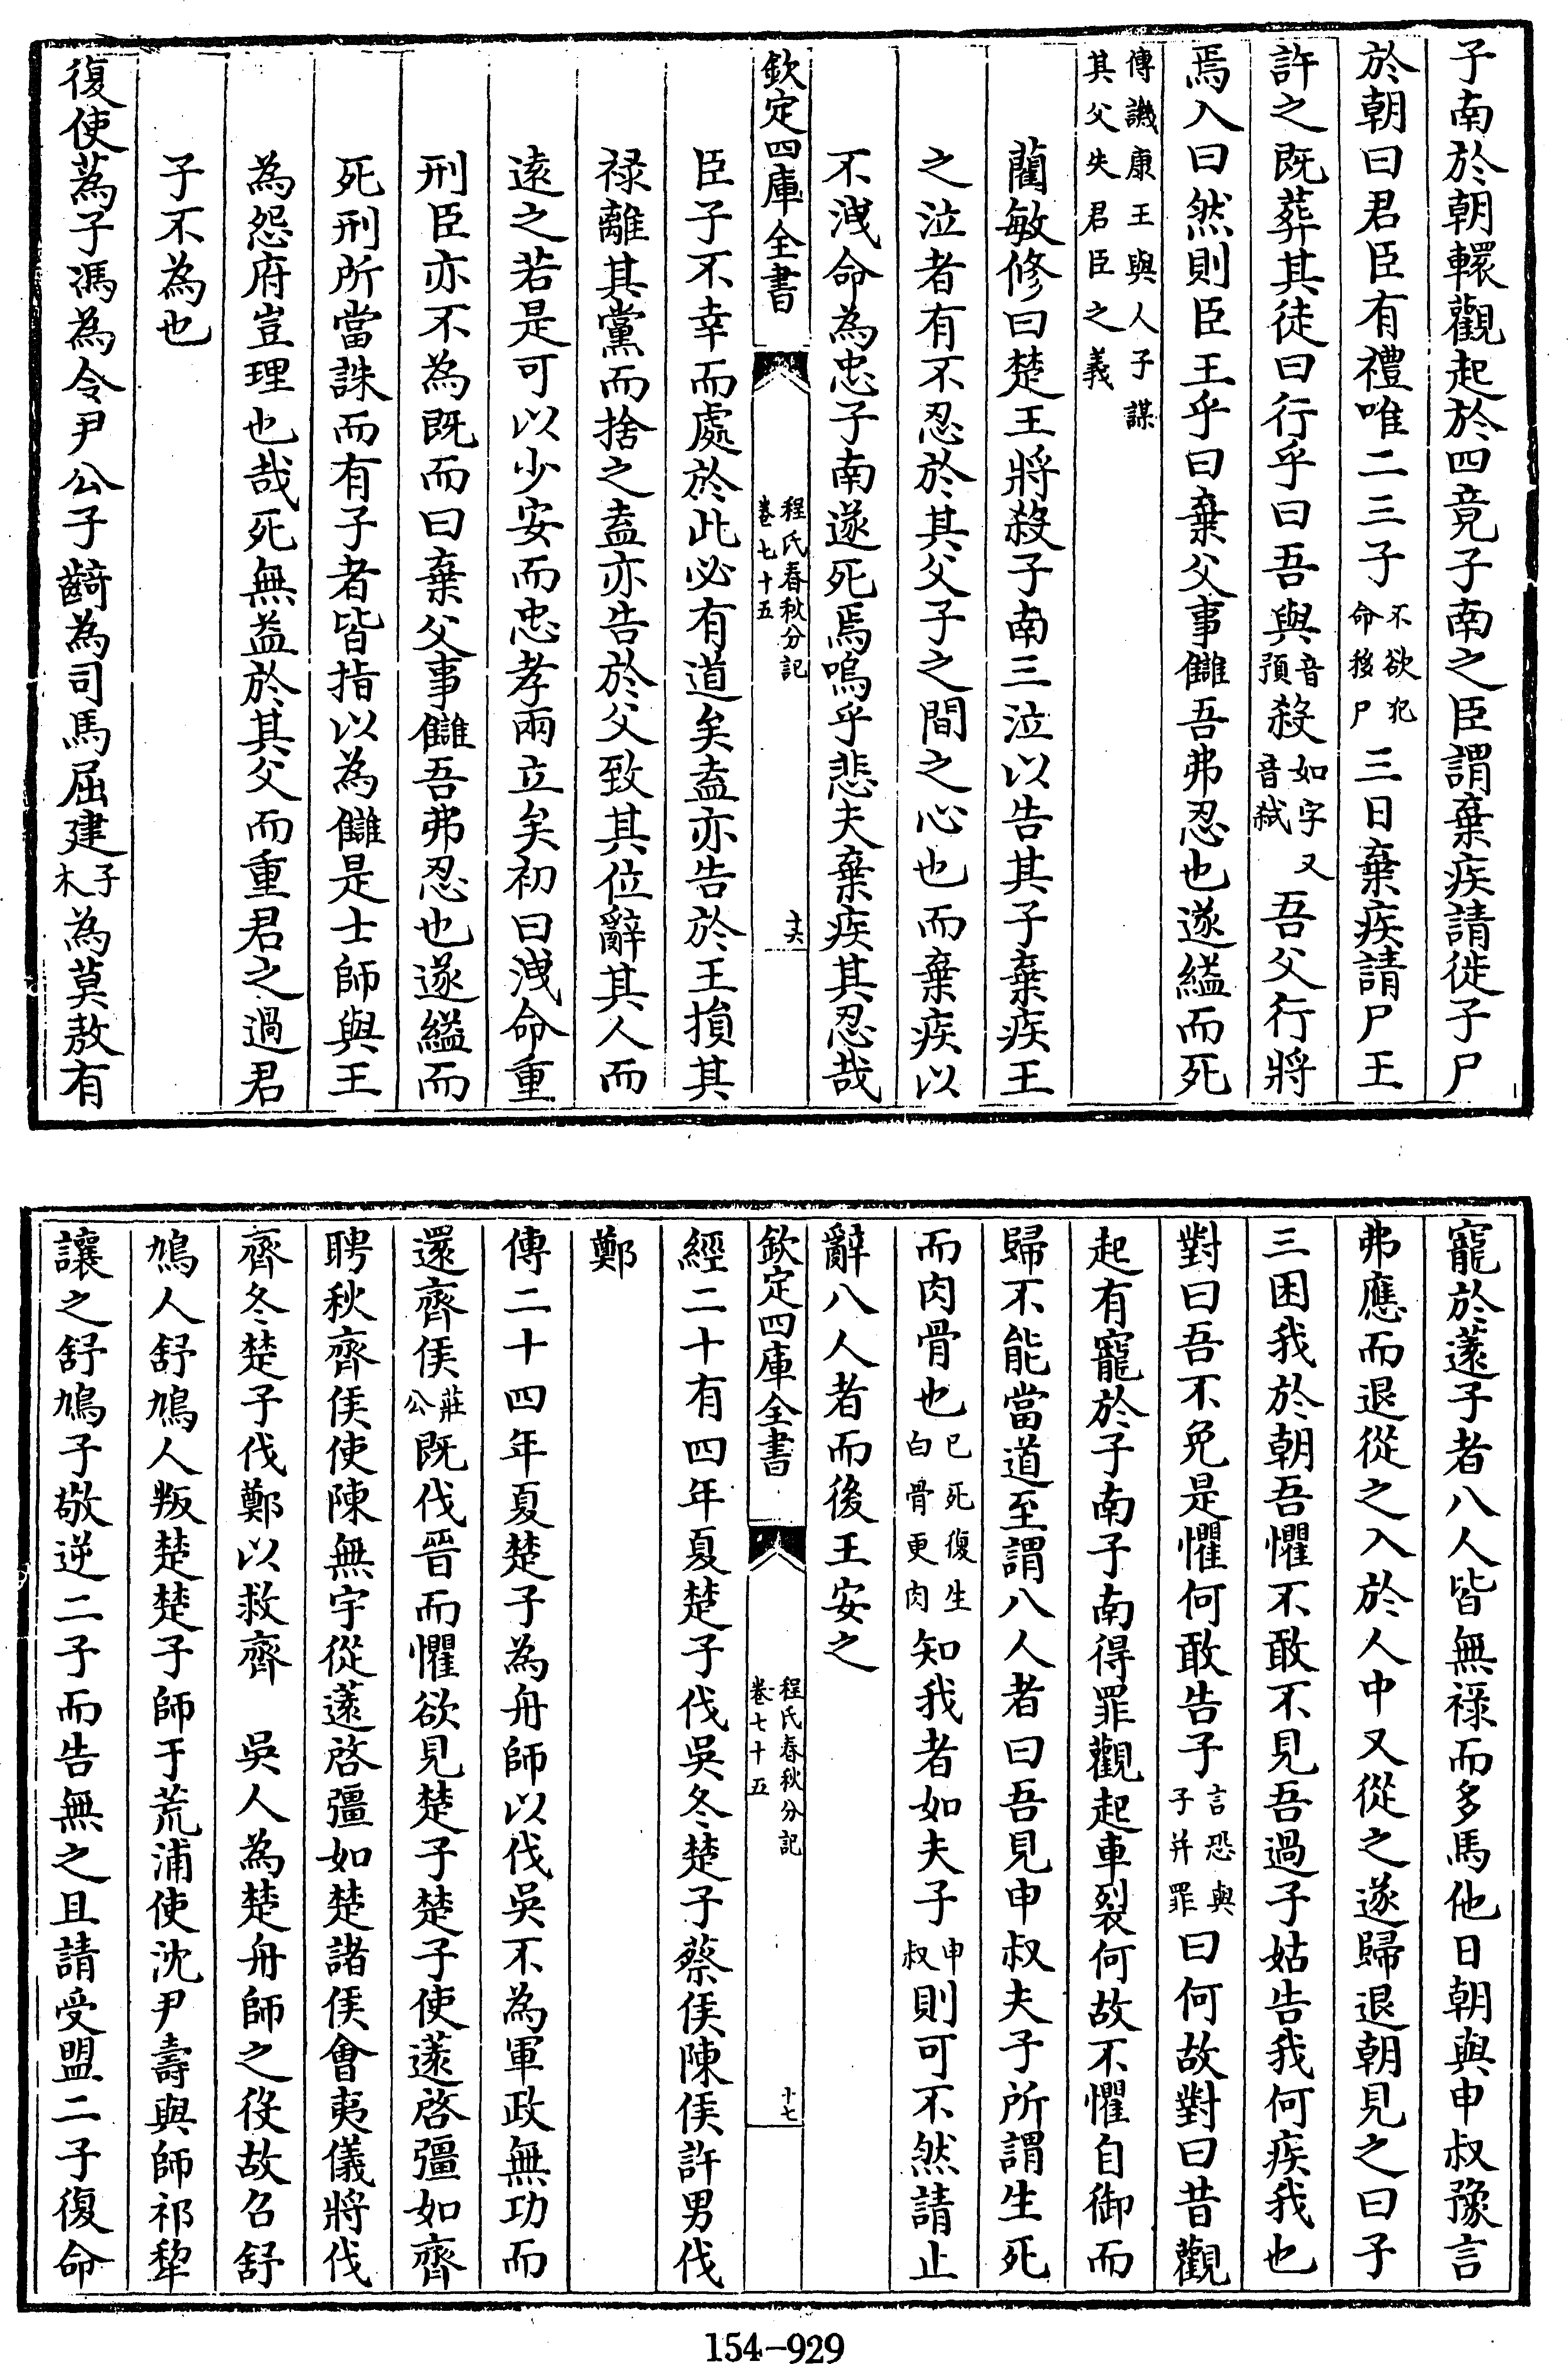 子南於朝轘觀起於四竟子南之臣謂棄疾請徙子尸
於朝曰君臣有禮唯二三子不欲犯命移尸三日棄疾請尸王
許之既葬其徒曰行乎曰吾與音預殺如字又音弑吾父行將
焉入曰然則臣王乎曰棄父事讎吾弗忍也遂縊而死
傳譏康王與人子謀其父失君臣之義
藺敏修曰楚王將殺子南三泣以告其子棄疾王
之泣者有不忍於其父子之間之心也而棄疾以
不洩命為忠子南遂死焉嗚乎悲夫棄疾其忍哉
欽定四庫全書
程氏春秋分記
卷七十五
十六
臣子不幸而處於此必有道矣盍亦告於王損其
祿離其黨而捨之盍亦告於父致其位辭其人而
遠之若是可以少安而忠孝兩立矣初曰洩命重
刑臣亦不為既而曰棄父事讎吾弗忍也遂縊而
死刑所當誅而有子者皆指以為讎是士師與王
為怨府豈理也哉死無益於其父而重君之過君
子不為也
復使蒍子馮為令尹公子齮為司馬屈建子木為莫敖有
寵於薳子者八人皆無祿而多馬他日朝與申叔豫言
弗應而退從之入於人中又從之遂歸退朝見之曰子
三困我於朝吾懼不敢不見吾過子姑告我何疾我也
對曰吾不免是懼何敢告子言恐與子并罪曰何故對曰昔觀
起有寵於子南子南得罪觀起車裂何故不懼自御而
歸不能當道至謂八人者曰吾見申叔夫子所謂生死
而肉骨也已死復生白骨更肉知我者如夫子申叔則可不然請止
辭八人者而後王安之
欽定四庫全書
程氏春秋分記
卷七十五
十七
經二十有四年夏楚子伐吳冬楚子蔡侯陳侯許男伐
鄭
傳二十四年夏楚子為舟師以伐吳不為軍政無功而
還齊侯莊公既伐晉而懼欲見楚子楚子使薳啓彊如齊
聘秋齊侯使陳無宇從薳啓彊如楚諸侯會夷儀將伐
齊冬楚子伐鄭以救齊　吳人為楚舟師之役故召舒
鳩人舒鳩人叛楚楚子師于荒浦使沈尹壽與師祁犂
讓之舒鳩子敬逆二子而告無之且請受盟二子復命
154-929